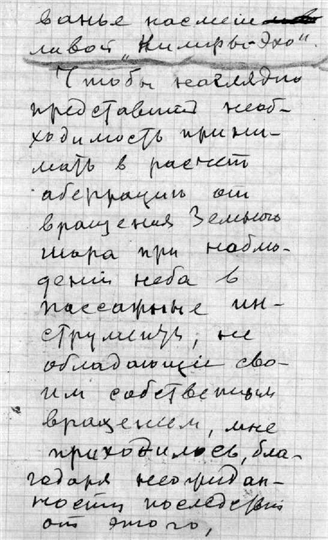 ванье насмеш
ливой „Нимфы-Эхо“.
Чтобы наглядно
представить необ-
ходимость прини-
мать в расчет
аберрацию от
вращения Земного
шара при наблю-
дении неба в
пассажные ин-
струменты, не
обладающие сво-
им собственным
вращением, мне
приходилось, бла-
годаря неожидан-
ности последствий
от этого,